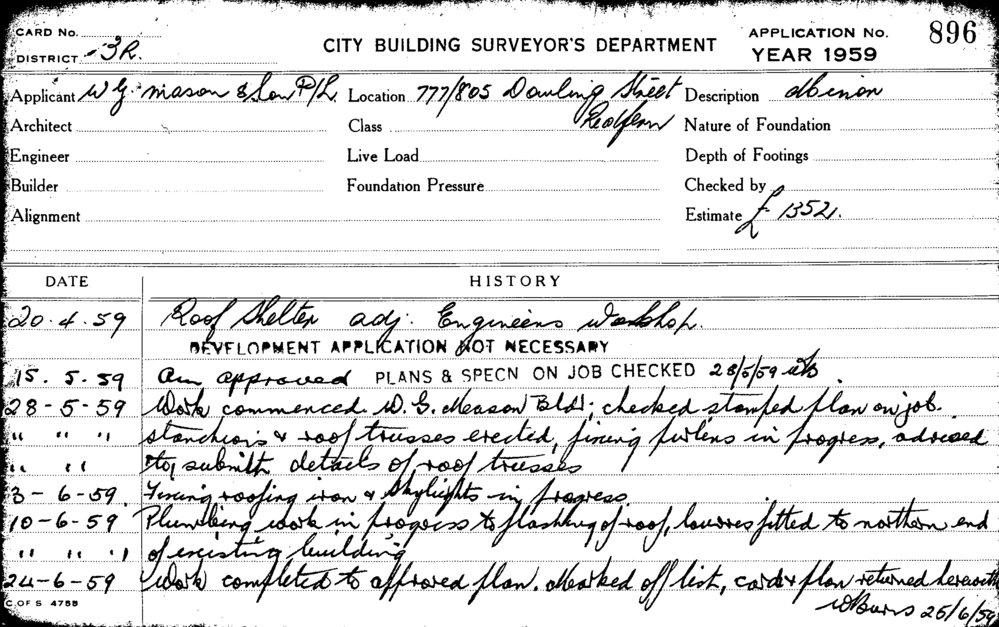 CARD No.
DISTRICT 3R.
CITY BUILDING SURVEYOR'S DEPARTMENT
APPLICATION No. 896
YEAR 1959
Applicant W G. Mason & Son P/L. Location 777/805 Dowling Street Description Minor
Redfern
Architect Class Nature of Foundation
Engineer Live Load Depth of Footings
Builder Foundation Pressure Checked by
Alignment Estimate £ 1352.
DATE HISTORY
20.4.59 Roof Shelter adj. Engineers workshop.
DEVELOPMENT APPLICATION NOT NECESSARY
15.5.59 am approved PLANS & SPECN ON JOB CHECKED 28/5/59 WB
28-5-59 Work commenced. W. G. Meason Bldr; checked stamped plan on job.
" " " stanchions & roof trusses erected, fixing purlins in progress, advised
" " to submit details of roof trusses
3-6-59. Fixing roofing iron & skylights in progress
10-6-59 Plumbing work in progress to flashing of roof, louvres fitted to northern end
" " " of existing building
24-6-59 Work completed to approved plan. Marked off list, card & plan returned herewith
WBurns 25/6/59
C. OF S 475B